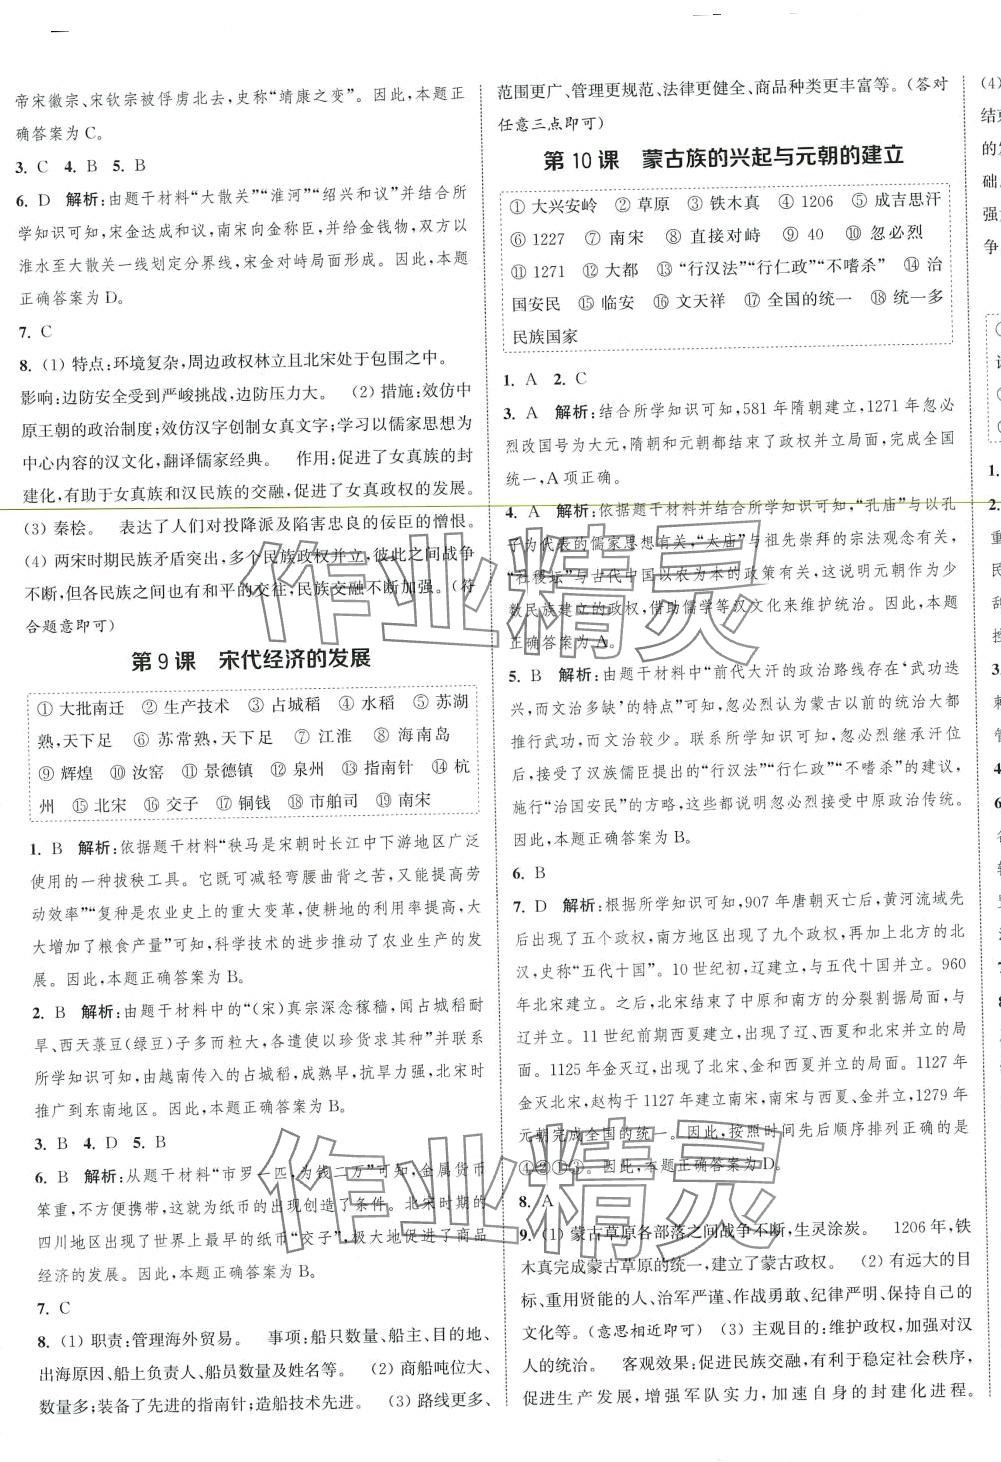 帝宋徽宗、宋钦宗被俘虏北去,史称“靖康之变”。因此,本题正
确答案为 C。
3. C 4. B 5. B
6. D 解析:由题干材料“大散关”“淮河”“绍兴和议”并结合所
学知识可知,宋金达成和议,南宋向金称臣,并给金钱物,双方以
淮水至大散关一线划定分界线,宋金对峙局面形成。因此,本题
正确答案为 D。
7. C
8. (1) 特点:环境复杂,周边政权林立且北宋处于包围之中。
影响:边防安全受到严峻挑战,边防压力大。 (2) 措施:效仿中
原王朝的政治制度;效仿汉字创制女真文字;学习以儒家思想为
中心内容的汉文化,翻译儒家经典。 作用:促进了女真族的封
建化,有助于女真族和汉民族的交融,促进了女真政权的发展。
(3) 秦桧。 表达了人们对投降派及陷害忠良的佞臣的憎恨。
(4) 两宋时期民族矛盾突出,多个民族政权并立,彼此之间战争
不断,但各民族之间也有和平的交往,民族交融不断加强。(符
合题意即可)
第 9 课 宋代经济的发展
① 大批南迁 ② 生产技术 ③ 占城稻 ④ 水稻 ⑤ 苏湖
熟,天下足 ⑥ 苏常熟,天下足 ⑦ 江淮 ⑧ 海南岛
⑨ 辉煌 ⑩ 汝窑 ⑪ 景德镇 ⑫ 泉州 ⑬ 指南针 ⑭ 杭
州 ⑮ 北宋 ⑯ 交子 ⑰ 铜钱 ⑱ 市舶司 ⑲ 南宋
1. B 解析:依据题干材料“秧马是宋朝时长江中下游地区广泛
使用的一种拔秧工具。它既可减轻弯腰曲背之苦,又能提高劳
动效率”“复种是农业史上的重大变革,使耕地的利用率提高,大
大增加了粮食产量”可知,科学技术的进步推动了农业生产的发
展。因此,本题正确答案为 B。
2. B 解析:由题干材料中的“(宋)真宗深念稼穑,闻占城稻耐
旱、西天菉豆(绿豆)子多而粒大,各遣使以珍货求其种”并联系
所学知识可知,由越南传入的占城稻,成熟早,抗旱力强,北宋时
推广到东南地区。因此,本题正确答案为 B。
3. B 4. D 5. B
6. B 解析:从题干材料“市罗一匹,为钱二万”可知,金属货币
笨重,不方便携带,这就为纸币的出现创造了条件。北宋时期的
四川地区出现了世界上最早的纸币“交子”,极大地促进了商品
经济的发展。因此,本题正确答案为 B。
7. C
8. (1) 职责:管理海外贸易。 事项:船只数量、船主、目的地、
出海原因、船上负责人、船员数量及姓名等。 (2) 商船吨位大、
数量多;装备了先进的指南针;造船技术先进。 (3) 路线更多、
范围更广、管理更规范、法律更健全、商品种类更丰富等。(答对
任意三点即可)
第 10 课 蒙古族的兴起与元朝的建立
① 大兴安岭 ② 草原 ③ 铁木真 ④ 1206 ⑤ 成吉思汗
⑥ 1227 ⑦ 南宋 ⑧ 直接对峙 ⑨ 40 ⑩ 忽必烈
⑪ 1271 ⑫ 大都 ⑬ “行汉法”“行仁政”“不嗜杀” ⑭ 治
国安民 ⑮ 临安 ⑯ 文天祥 ⑰ 全国的统一 ⑱ 统一多
民族国家
1. A 2. C
3. A 解析:结合所学知识可知,581 年隋朝建立,1271 年忽必
烈改国号为大元,隋朝和元朝都结束了政权并立局面,完成全国
统一,A 项正确。
4. A 解析:依据题干材料并结合所学知识可知,“孔庙”与以孔
子为代表的儒家思想有关,“太庙”与祖先崇拜的宗法观念有关,
“社稷坛”与古代中国以农为本的政策有关,这说明元朝作为少
数民族建立的政权,借助儒学等汉文化来维护统治。因此,本题
正确答案为 A。
5. B 解析:由题干材料中“前代大汗的政治路线存在‘武功迭
兴,而文治多缺’的特点”可知,忽必烈认为蒙古以前的统治大都
推行武功,而文治较少。联系所学知识可知,忽必烈继承汗位
后,接受了汉族儒臣提出的“行汉法”“行仁政”“不嗜杀”的建议,
施行“治国安民”的方略,这些都说明忽必烈接受中原政治传统。
因此,本题正确答案为 B。
6. B
7. D 解析:根据所学知识可知,907 年唐朝灭亡后,黄河流域先
后出现了五个政权,南方地区出现了九个政权,再加上北方的北
汉,史称“五代十国”。10 世纪初,辽建立,与五代十国并立。960
年北宋建立。之后,北宋结束了中原和南方的分裂割据局面,与
辽并立。11 世纪前期西夏建立,出现了辽、西夏和北宋并立的局
面。1125 年金灭辽,出现了北宋、金和西夏并立的局面。1127 年
金灭北宋,赵构于 1127 年建立南宋,南宋与西夏、金并立,1279 年
元朝完成全国的统一。因此,按照时间先后顺序排列正确的是
④②①③。因此,本题正确答案为 D。
8. A
9. (1) 蒙古草原各部落之间战争不断,生灵涂炭。 1206 年,铁
木真完成蒙古草原的统一,建立了蒙古政权。 (2) 有远大的目
标、重用贤能的人、治军严谨、作战勇敢、纪律严明、保持自己的
文化等。(意思相近即可) (3) 主观目的:维护政权,加强对汉
人的统治。 客观效果:促进民族交融,有利于稳定社会秩序,
促进生产发展,增强军队实力,加速自身的封建化进程。
(4)
结束
的发
础。
强大
争
1.
2.
3.
4.
作业精灵
作业精灵